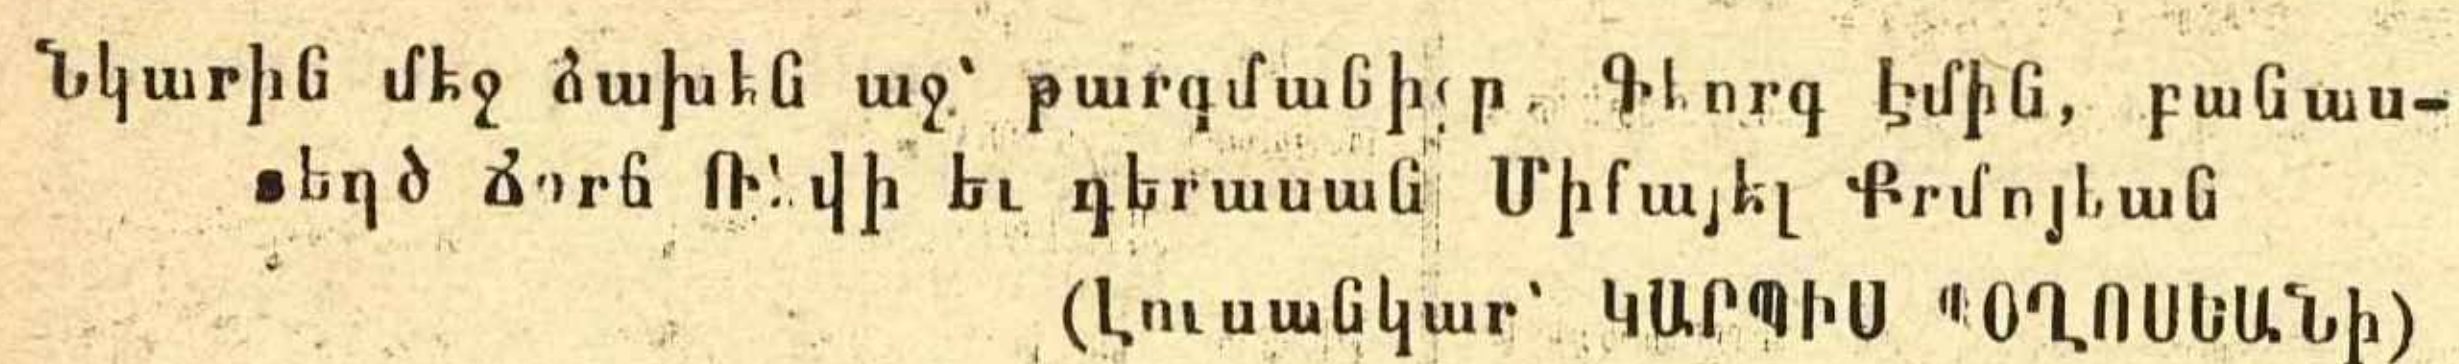 Նկարին մէջ ձախէն աջ՝ թարգմանիչ ր. Գէորգ Էմին, բանաս-
տեղծ Ճորճ Ռ՚վի եւ դերասան Միքայէլ Քրմոյեան
(Լուսանկար՝ ԿԱՐՊԻՍ ՊՕՂՈՍԵԱՆի)